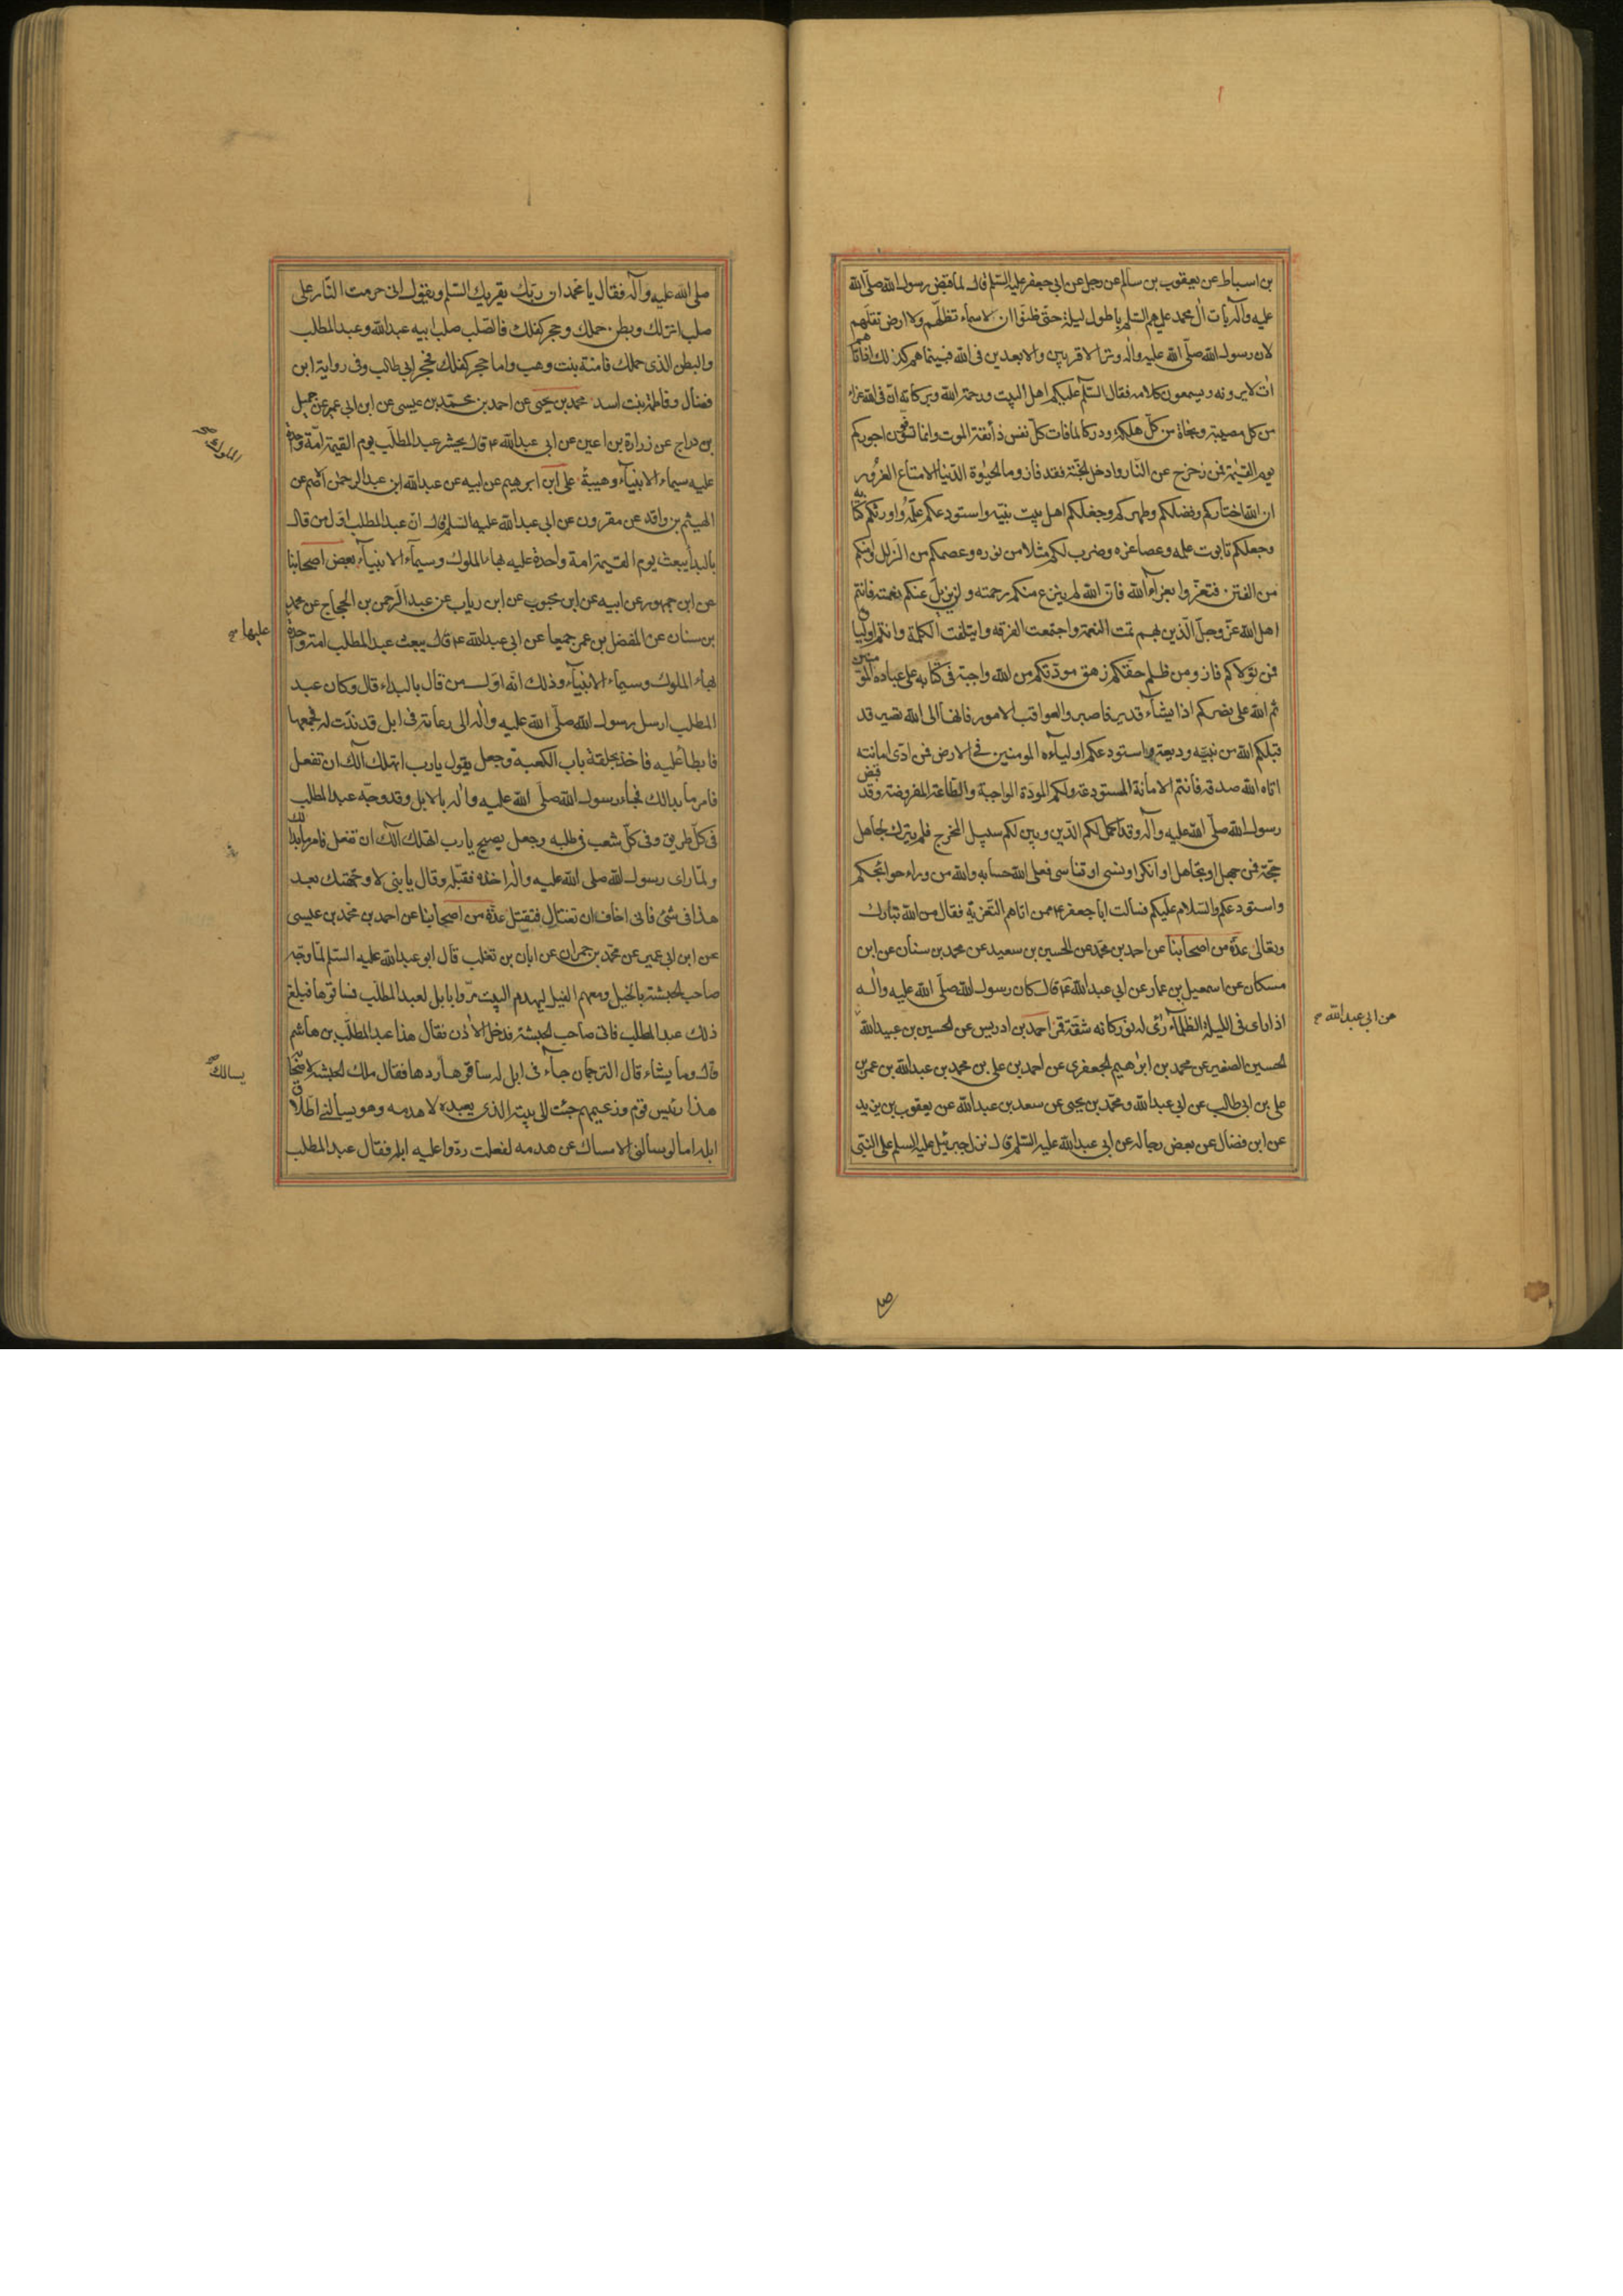 بن اسباط عن يعقوب بن سالم عن رجل عن ابي جعفر عليه السلم قال لما قبض رسول الله صلّى الله
عليه وآله بات آل محمد عليهم السلم باطول ليلة حتّى ظنّوا ان لا سماء تظلّهم ولا ارض تقلّهم
لان رسول الله صلّى الله عليه واله وتر الاقربين والابعدين فى الله فبينما هم كذلك اذ اتاهم
ات لا يرونه ويسمعون كلامه فقال السّلم عليكم اهل البيت ورحمة الله وبركاته ان فى الله عزاء
من كل مصيبة ونجاة من كلّ هلكة ودركا لما فات كلّ نفس ذائقة الموت وانما توفون اجوركم
يوم القيمة فمن زحزح عن النّار وادخل الجنّة فقد فاز وما الحيوة الدّنيا الا متاع الغرُور
ان الله اختاركم وفضلكم وطهركم وجعلكم اهل بيت نبيّه واستودعكم علمه واورثكم كتابه
وجعلكم تابوت علمه وعصا عزه وضرب لكم مثلا من نوره وعصمكم من الزلل وامنكم
من الفتن فتعزّوا بعزاء الله فان الله لم ينزع منكم رحمته ولن يزيل عنكم نعمته فانتم
اهل الله عزّ وجلّ الّذين بهم تمت النعمة واجتمعت الفرقه وايتلفت الكلمة وانتم اولياؤه
فمن تولاكم فاز ومن ظلم حقّكم زهق مودّتكم من الله واجبة فى كتابه على عباده المؤمنين
ثم الله على نصركم اذا يشاء قدير فاصبروا لعواقب الامور فانها الى الله تصير قد
قبلكم الله من نبيّه وديعة واستودعكم اولياءه المومنين فى الارض فمن ادّى امانته
اتاه الله صدقه فانتم الامانة المستودعة ولكم المودّة الواجبة والطّاعة المفروضة وقد قبض
رسول الله صلّى الله عليه وآله وقد اكمل لكم الدّين وبين لكم سبيل المخرج فلم يترك لجاهل
حجّة فمن جهل او تجاهل او انكر او نسى او تناسى فعلى الله حسابه والله من وراء حوائجكم
واستودعكم والسّلام عليكم فسالت ابا جعفر ع ممن اتاهم التّعزية فقال من الله تبارك
وتعالى عدّة من اصحابنا عن احمد بن محمّد عن الحسين بن سعيد عن محمد بن سنان عن ابن
مسكان عن اسمعيل بن عمار عن ابي عبدالله ع قال كان رسول الله صلّى الله عليه واله
اذا راى فى الليلة الظلماء رُئى له نور كانه شقّة قمر احمد بن ادريس عن الحسين بن عبيدالله
عن ابي عبدالله
الحسين الصغير عن محمد بن ابرٰهيم الجعفرى عن احمد بن على بن محمد بن عبدالله بن عمر بن
على بن ابى طالب عن ابي عبدالله ومحمّد بن يحيى عن سعد بن عبدالله عن يعقوب بن يزيد
عن ابن فضال عن بعض رجاله عن ابى عبدالله عليه السّلم قال نزل جبرئيل عليه السلم على النبّى
صلى الله عليه وآله فقال يا محمد ان ربّك يقريك السّلم ويقول انى حرمت النّار على
صلب انزلك وبطن حملك وحجر كفلك فالصّلب صلب ابيه عبدالله وعبدالمطلب
والبطن الذى حملك فامنة بنت وهب واما حجر كفلك فحجر ابى طالب وفى رواية ابن
فضال وفاطمة بنت اسد محمد بن يحيى عن احمد بن محمّد بن عيسى عن ابن ابى عمير عن جميل
بن دراج عن زرارة بن اعين عن ابى عبدالله ع قال يحشر عبدالمطلّب يوم القيمة امّة واحدة
الملوك
عليه سيماء الانبياء وهيبة على ابن ابرهيم عن ابيه عن عبدالله ابن عبدالرحمٰن الاصم عن
الهيثم بن واقد عن مقرون عن ابى عبدالله عليه السلم قال ان عبدالمطلب اوّل من قال
بالبدا يبعث يوم القيمة امة واحدة عليه بهاء الملوك وسيمآء الانبيآء بعض اصحابنا
عن ابن جمهور عن ابيه عن ابن محبوب عن ابن رياب عن عبدالرّحمن بن الحجاج عن محمد
بن سنان عن المفضل بن عمر جميعا عن ابى عبدالله ع قال يبعث عبدالمطلب امة واحدة
عليها
بهاء الملوك وسيماء الانبيآء وذلك انّه اوّل من قال بالبداء قال وكان عبد
المطلب ارسل رسول الله صلّى الله عليه واٰله الى رعاته فى ابل قد ندّت له فجمعها
فابطأ عليه فاخذ بحلقة باب الكعبة وجعل يقول يارب اتهلك آلك ان تفعل
فامر ما بدالك فجاء رسول الله صلّى الله عليه واله بالابل وقد وجّه عبدالمطلب
فى كلّ طريق وفى كلّ شعب فى طلبه وجعل يصيح يارب اتهلك آلك ان تفعل فامر ما بدا لك
ولمّا راى رسول الله صلى الله عليه واله اخذه فقبّله وقال يا بنى لا وجّهتك بعد
هذا فى شئ فانى اخاف ان تغتال فتقتل عدّة من اصحابنا عن احمد بن محمّد بن عيسى
عن ابن ابى عمير عن محمّد بن حمران عن ابان بن تغلب قال ابو عبدالله عليه السّلم لمّا وجّه
صاحب الحبشة بالخيل ومعهم الفيل ليهدم البيت مرّوا بابل لعبدالمطلّب فساقوها فبلغ
ذلك عبدالمطلب فاتى صاحب الحبشة فدخل الاٰذن فقال هذا عبدالمطلّب بن هاشم
قال وما يشاء قال الترجمان جآء فى ابل له ساقوها ردها فقال ملك الحبشة لاصحابه
يسالك
هذا رئيس قوم وزعيمهم جئت الى بيته الذى يعبده لاهدمه وهو يسالنى اطلاق
ابله اما لو سالنى الامساك عن هدمه لفعلت ردّوا عليه ابله فقال عبدالمطلب